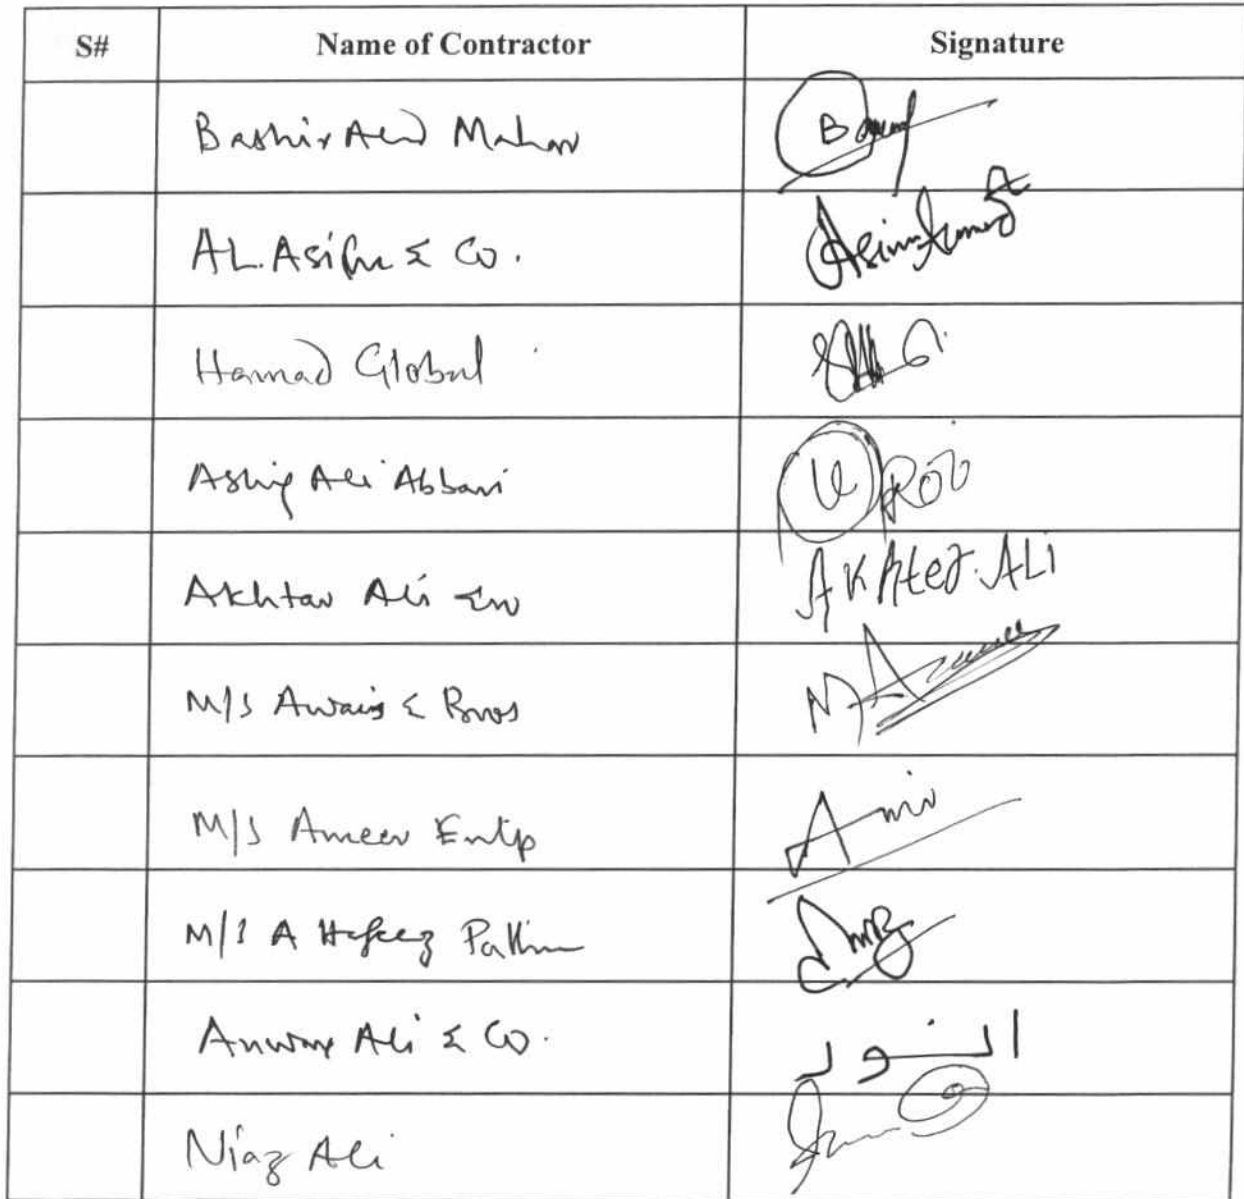 S# Name of Contractor Signature
Bashir Ahd Mahar
AL.Asifu & Co. Asim Ahmed
Hamad Global
Ashiq Ali Abbasi
Akhtar Ali AKhteR.ALi
M/S Awais & Bros
M/S Ameer Entp Amir
M/S A Hafeez Pathan
Anwar Ali & Co. انور
Niaz Ali